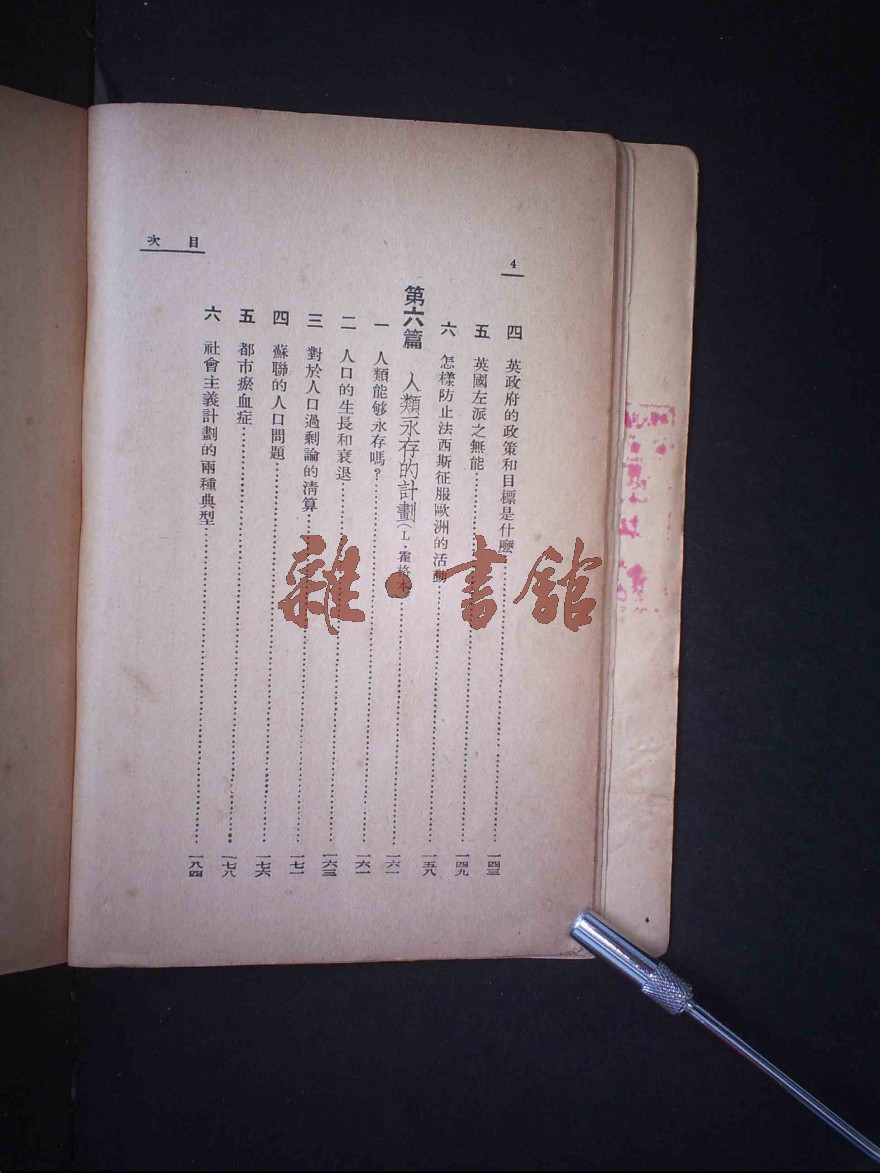 目次
4
四 英政府的政策和目標是什麽…………一四三
五 英國左派之無能…………一四九
六 怎樣防止法西斯征服歐洲的活動…………一五八
第六篇 人類永存的計劃(L·霍格本)…………一六一
一 人類能够永存嗎?…………一六一
二 人口的生長和衰退…………一六三
三 對於人口過剩論的清算…………一七一
四 蘇聯的人口問題…………一七六
五 都市瘀血症…………一七八
六 社會主義計劃的兩種典型…………一八四
雜·書館